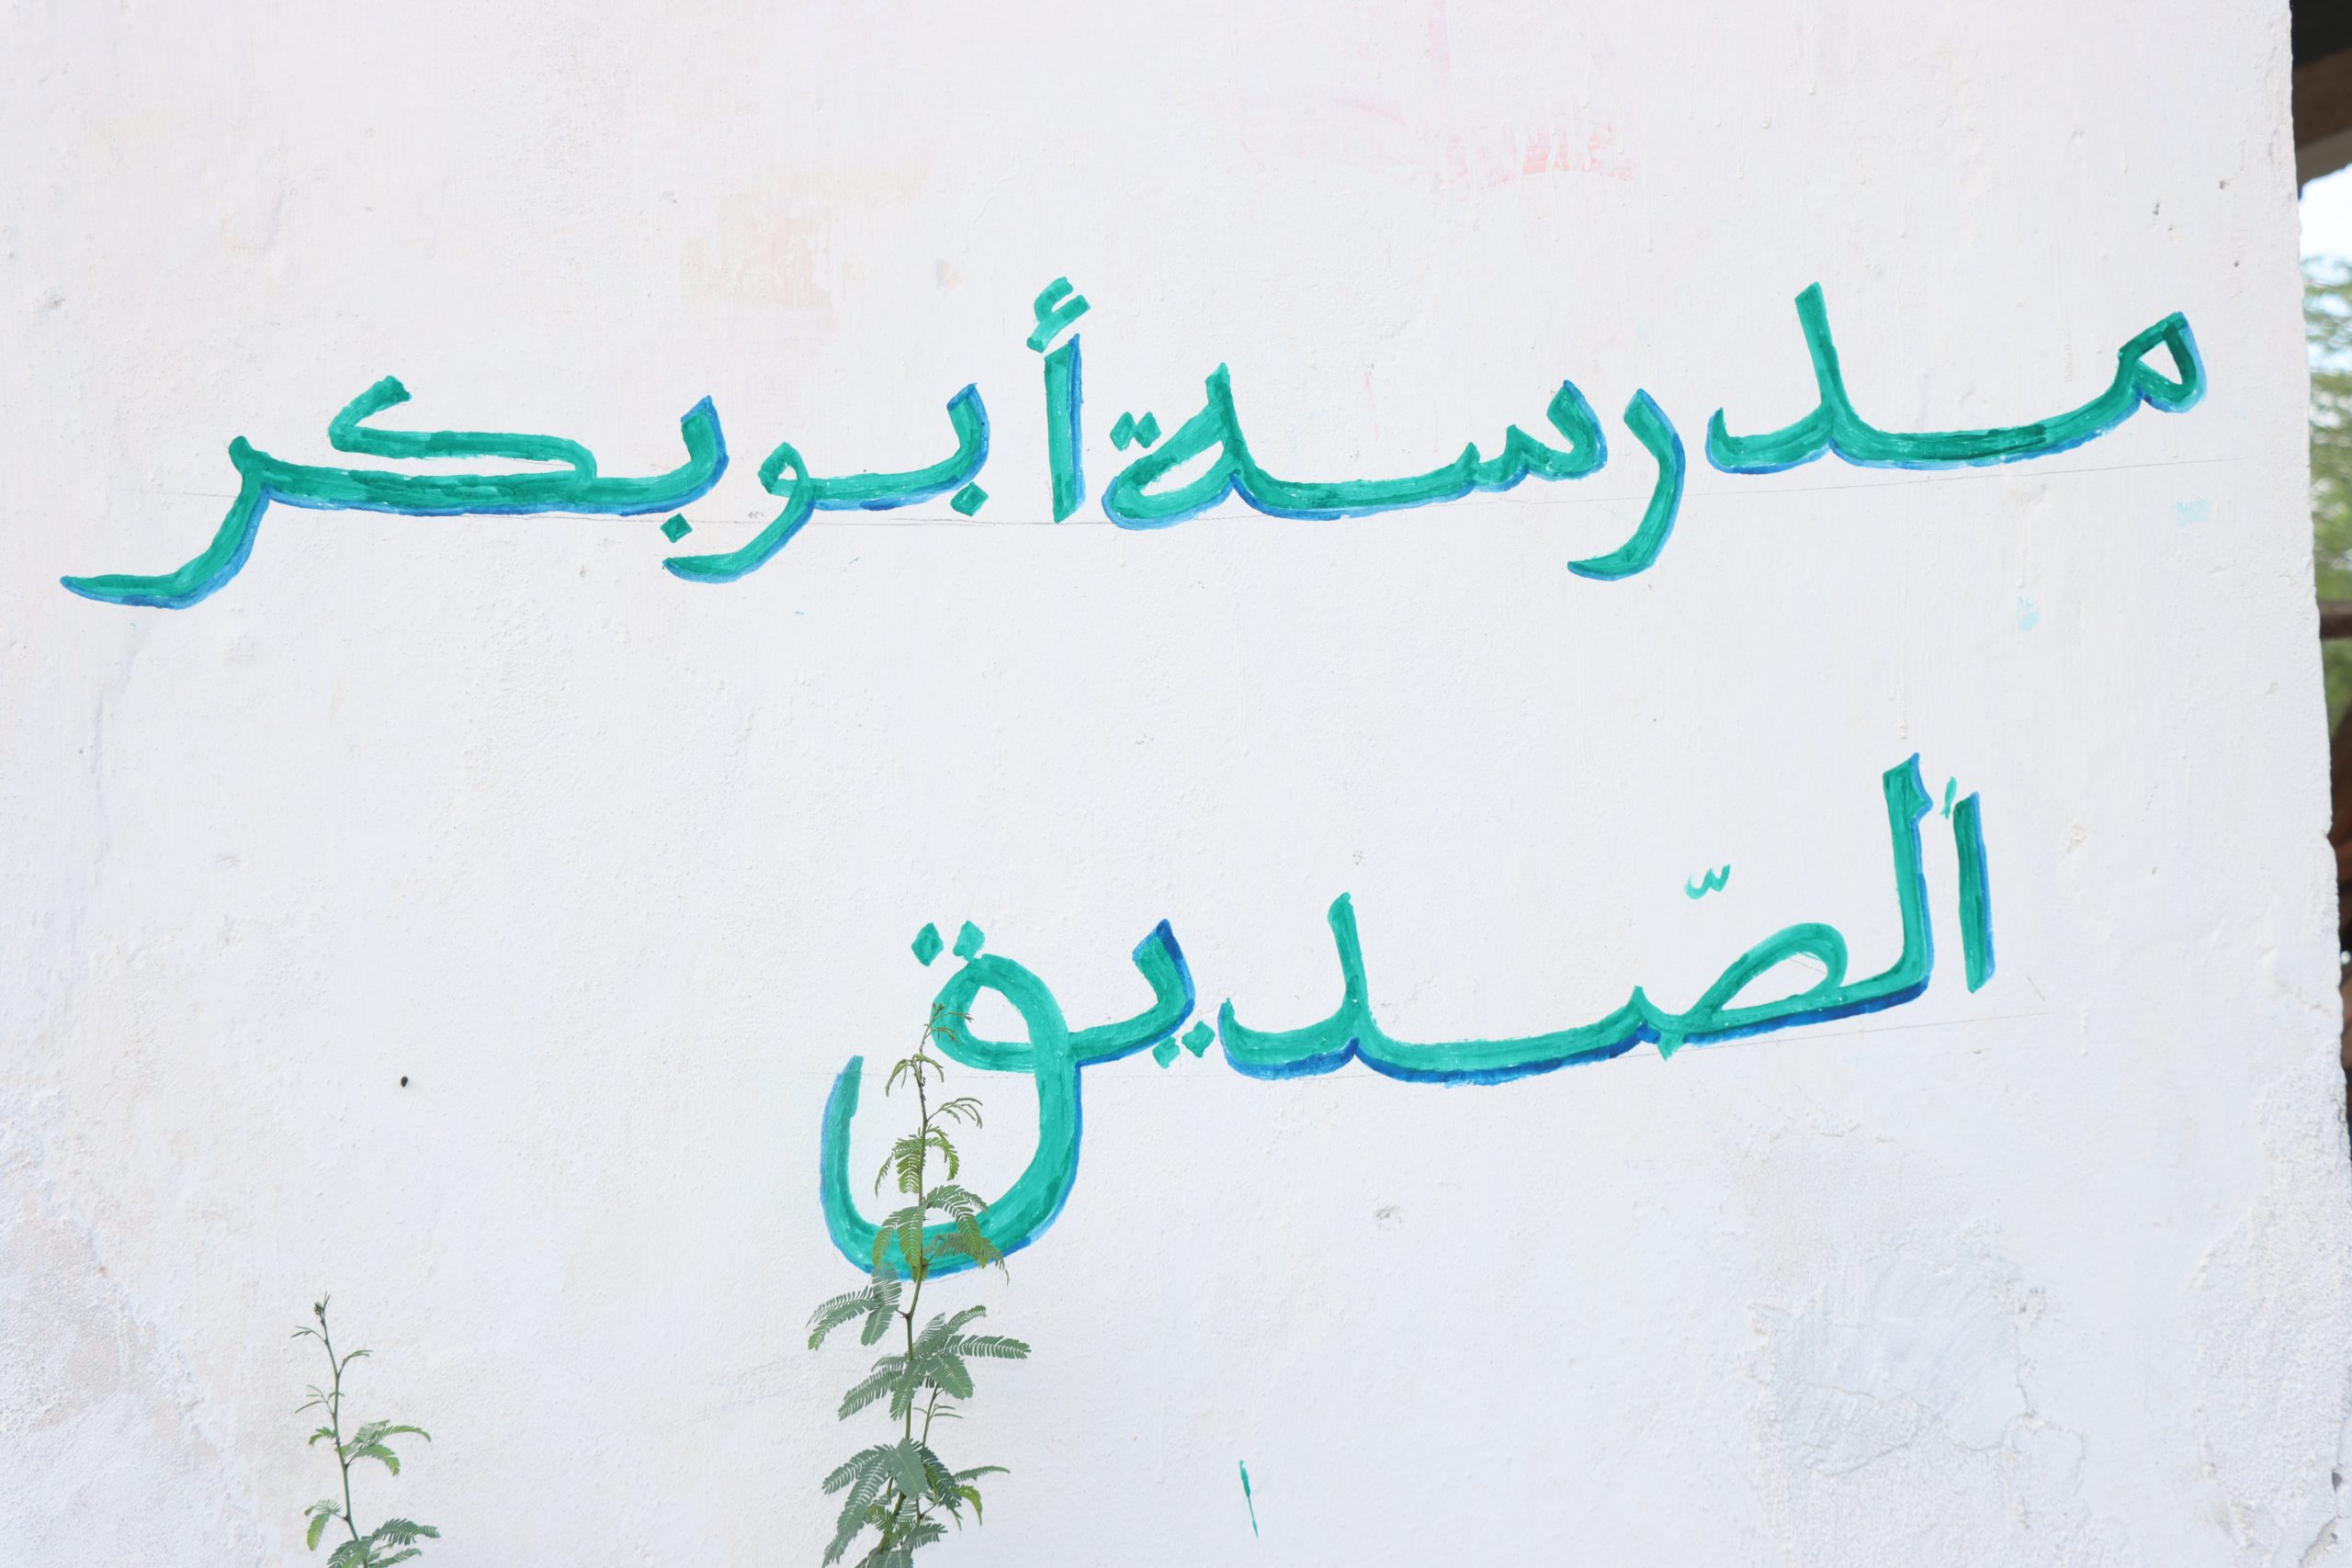 مدرسة أبوبكر
الصّديق